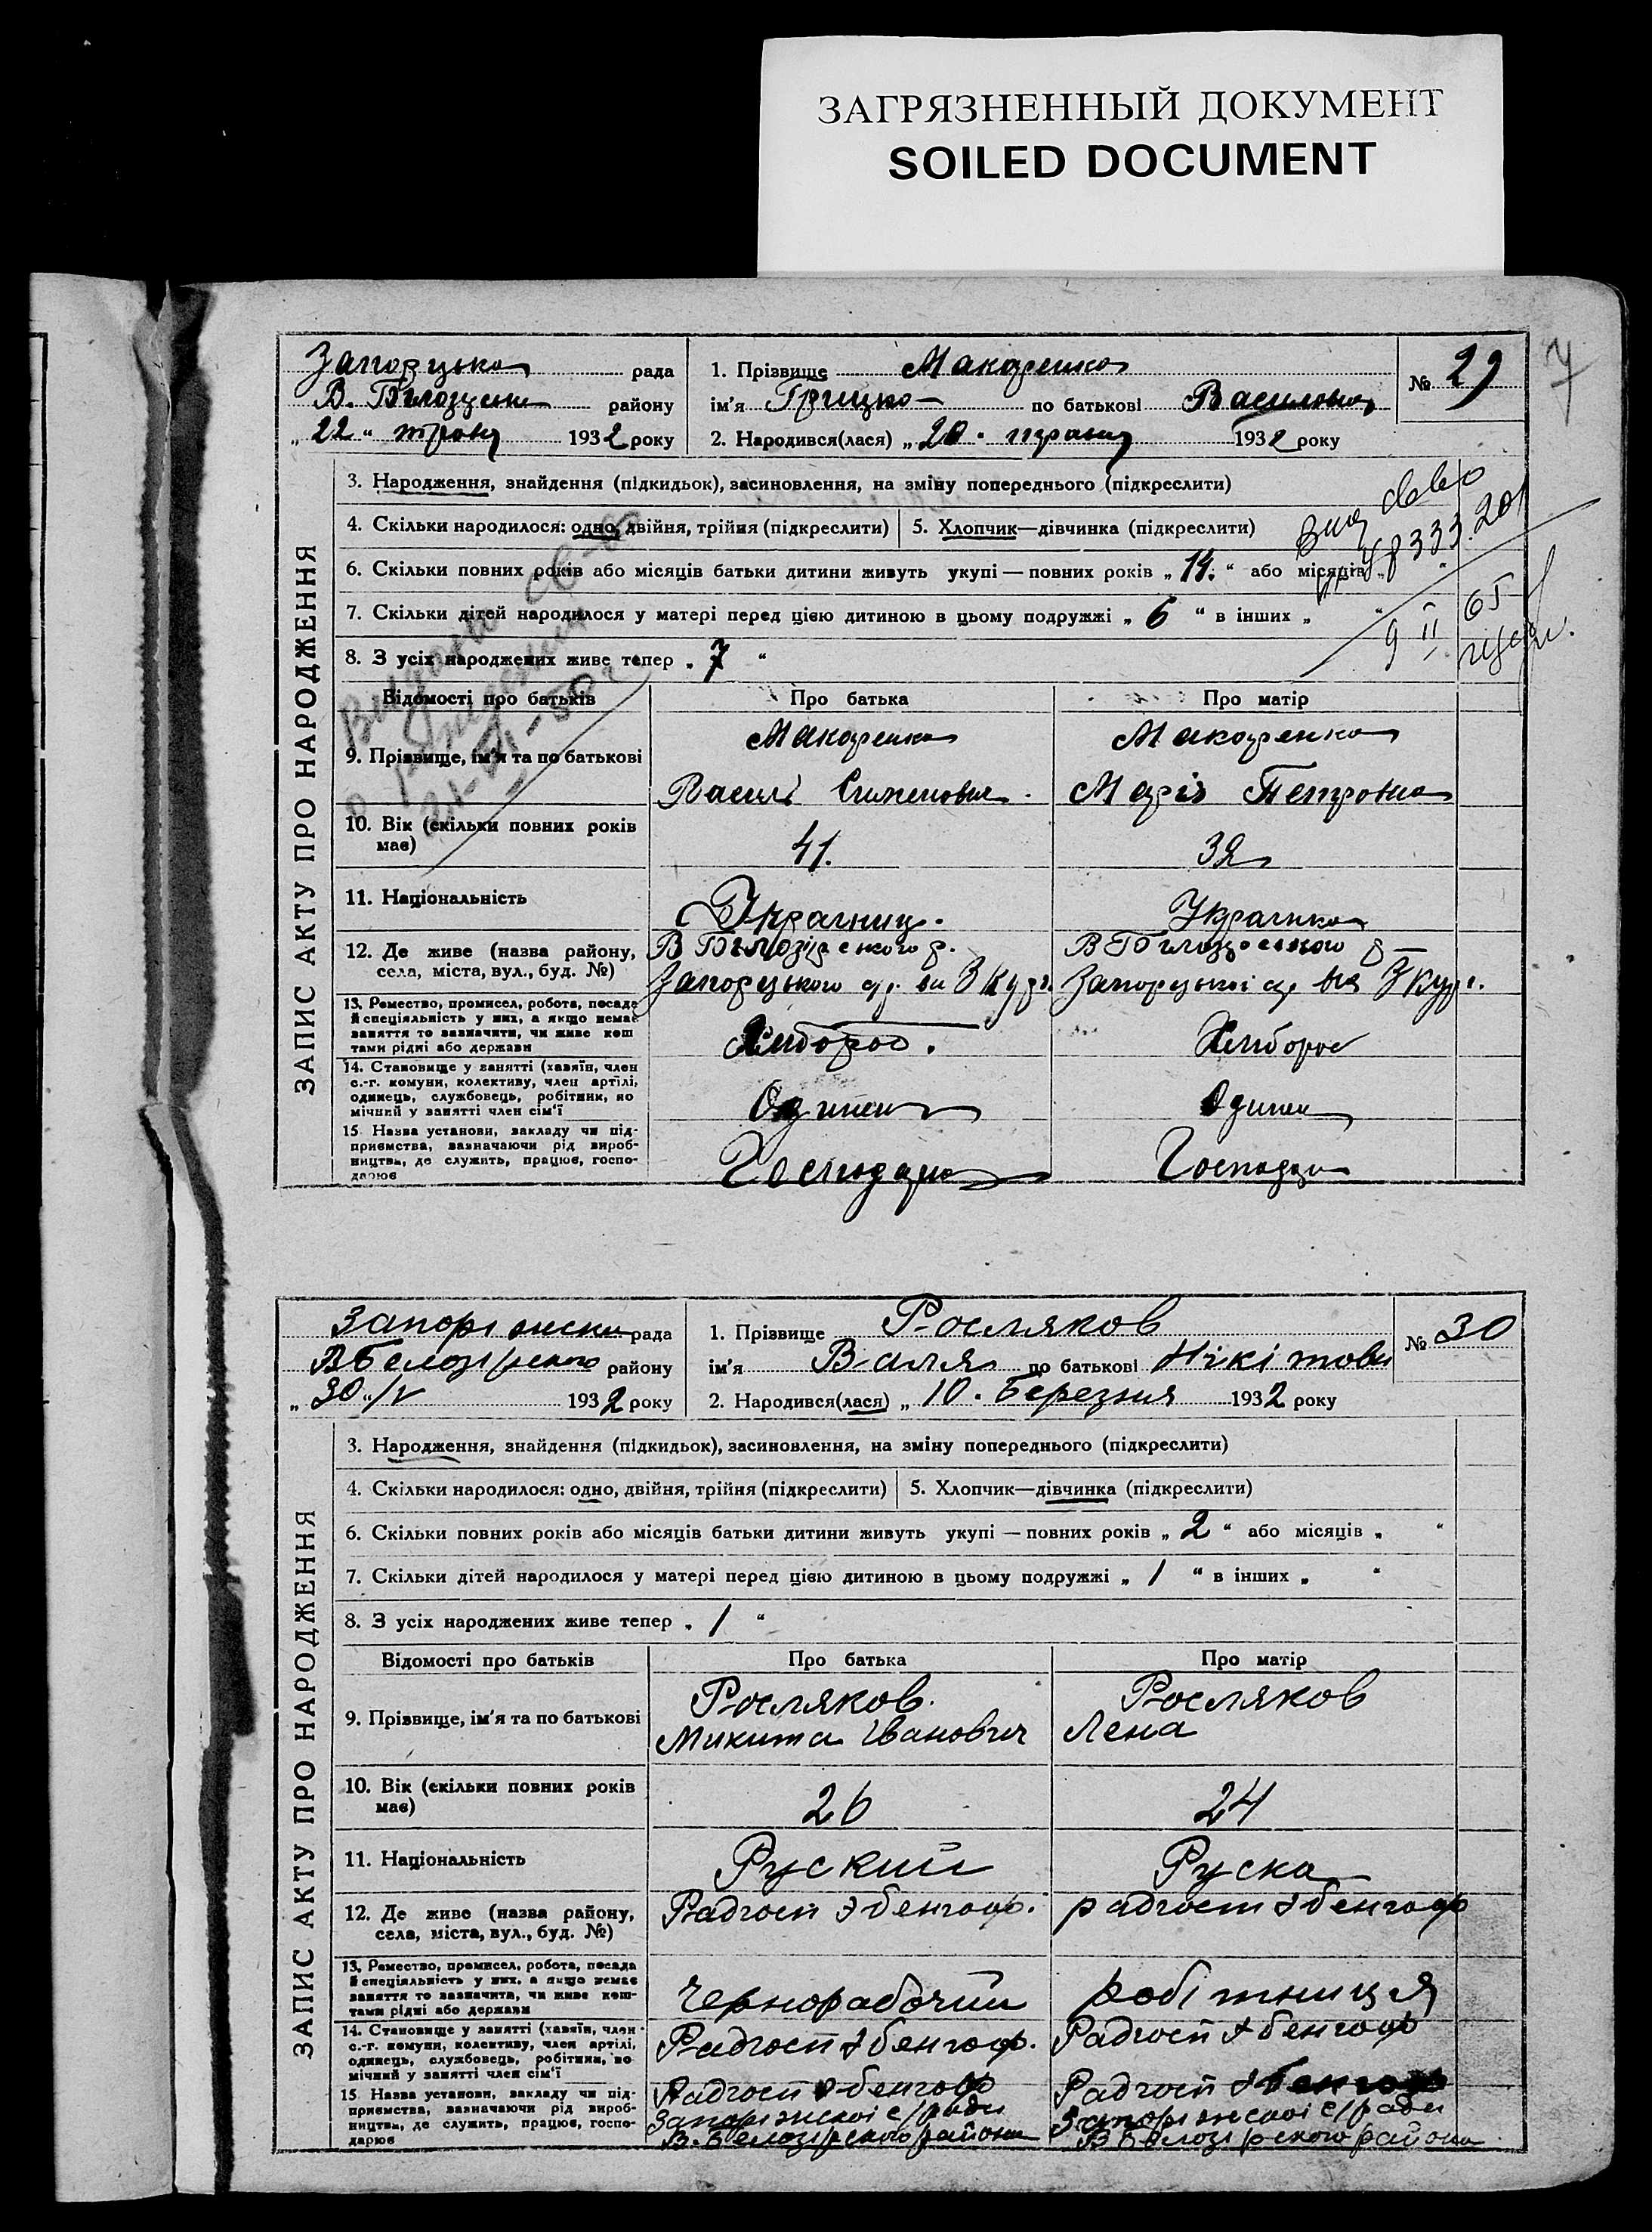 ЗАГРЯЗНЕННЫЙ ДОКУМЕНТ
SOILED DOCUMENT
7
рада
району
„22“ 1932 року
1. Прізвище Макаренко
ім'я Грицко по батькові
2. Народився(лася) „20“ 1932 року
№ 29
ЗАПИС АКТУ ПРО НАРОДЖЕННЯ
3. Народження, знайдення (підкидьок), засиновлення, на зміну попереднього (підкреслити)
4. Скільки народилося: одно, двійня, трійня (підкреслити)
5. Хлопчик—дівчинка (підкреслити)
6. Скільки повних років або місяців батьки дитини живуть укупі — повних років „14.“ або місяців „ “
7. Скільки дітей народилося у матері перед цією дитиною в цьому подружжі „6“ в інших „ “
8. З усіх народжених живе тепер „7“
Відомості про батьків Про батька Про матір
9. Прізвище, ім'я та по батькові
Макаренко Макаренко
Василь Марія Петровна
10. Вік (скільки повних років
має)
41. 32
11. Національність
Украинка
12. Де живе (назва району,
села, міста, вул., буд. №)
13. Ремество, промисел, робота, посада
й спеціяльність у них, а якщо немає
заняття то зазначити, чи живе кош
тами рідні або держави
Хлибороб. Хлибороб
14. Становище у занятті (хазяїн, член
с.-г. комуни, колективу, член артілі,
одинець, службовець, робітник, по
мічний у занятті член сім'ї
15 Назва установи, закладу чи під-
приємства, зазначаючи рід вироб-
ництва, де служить, працює, госпо-
дарює
рада
В Белозірского району
„30“ /V 1932 року
1. Прізвище Росляков
ім'я Валя по батькові Нікітовн
2. Народився(лася) „10. Березня 1932 року
№ 30
ЗАПИС АКТУ ПРО НАРОДЖЕННЯ
3. Народження, знайдення (підкидьок), засиновлення, на зміну попереднього (підкреслити)
4. Скільки народилося: одно, двійня, трійня (підкреслити)
5. Хлопчик—дівчинка (підкреслити)
6. Скільки повних років або місяців батьки дитини живуть укупі — повних років „2“ або місяців „ “
7. Скільки дітей народилося у матері перед цією дитиною в цьому подружжі „1“ в інших „ “
8. З усіх народжених живе тепер „1“
Відомості про батьків Про батька Про матір
9. Прізвище, ім'я та по батькові
Росляков Росляков
Микита Іванович Лена
10. Вік (скільки повних років
має)
26 24
11. Національність
Руский Руска
12. Де живе (назва району,
села, міста, вул., буд. №)
Радгосп Эбенгоф. радгосп Эбенгоф
13. Ремество, промисел, робота, посада
й спеціяльність у них, а якщо немає
заняття то зазначити, чи живе кош-
тами рідні або держави
Чернорабочий робітниця
14. Становище у занятті (хазяїн, член
с.-г. комуни, колективу, член артілі,
одинець, службовець, робітник, по
мічний у занятті член сім'ї
Радгосп Эбенгоф. Радгосп Эбенгоф
15 Назва установи, закладу чи під-
приємства, зазначаючи рід вироб-
ництва, де служить, працює, госпо-
дарює
Радгосп Эбенгоф Радгосп Эбенгоф
Запоріжскої с/ради Запоріжскої с/ради
В. Белозірского района В Белозірского района